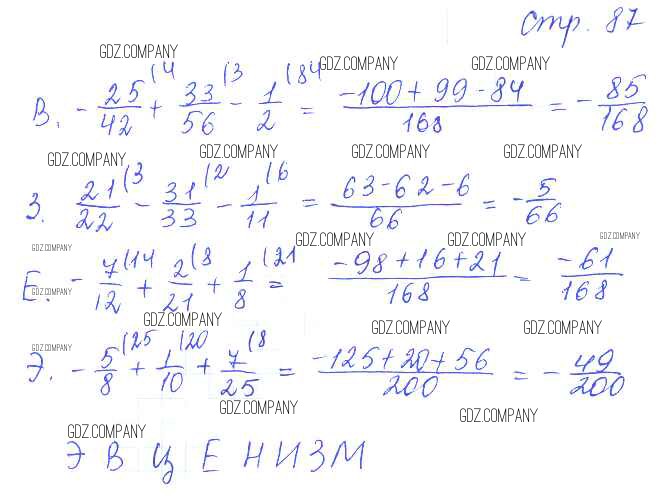 стр. 87
GDZ.COMPANY GDZ.COMPANY GDZ.COMPANY
В. - 25/42 (4 + 33/56 (3 - 1/2 (84 = -100 + 99 - 84/168 = - 85/168
GDZ.COMPANY GDZ.COMPANY GDZ.COMPANY GDZ.COMPANY
З. 21/22 (3 - 31/33 (2 - 1/11 (6 = 63 - 62 - 6/66 = - 5/66
GDZ.COMPANY GDZ.COMPANY GDZ.COMPANY GDZ.COMPANY
Е. - 7/12 (14 + 2/21 (8 + 1/8 (21 = -98 + 16 + 21/168 = -61/168
GDZ.COMPANY
GDZ.COMPANY GDZ.COMPANY GDZ.COMPANY
GDZ.COMPANY
Э. - 5/8 (25 + 1/10 (20 + 7/25 (8 = -125 + 20 + 56/200 = - 49/200
GDZ.COMPANY GDZ.COMPANY
GDZ.COMPANY
Э В Ц Е Н И З М